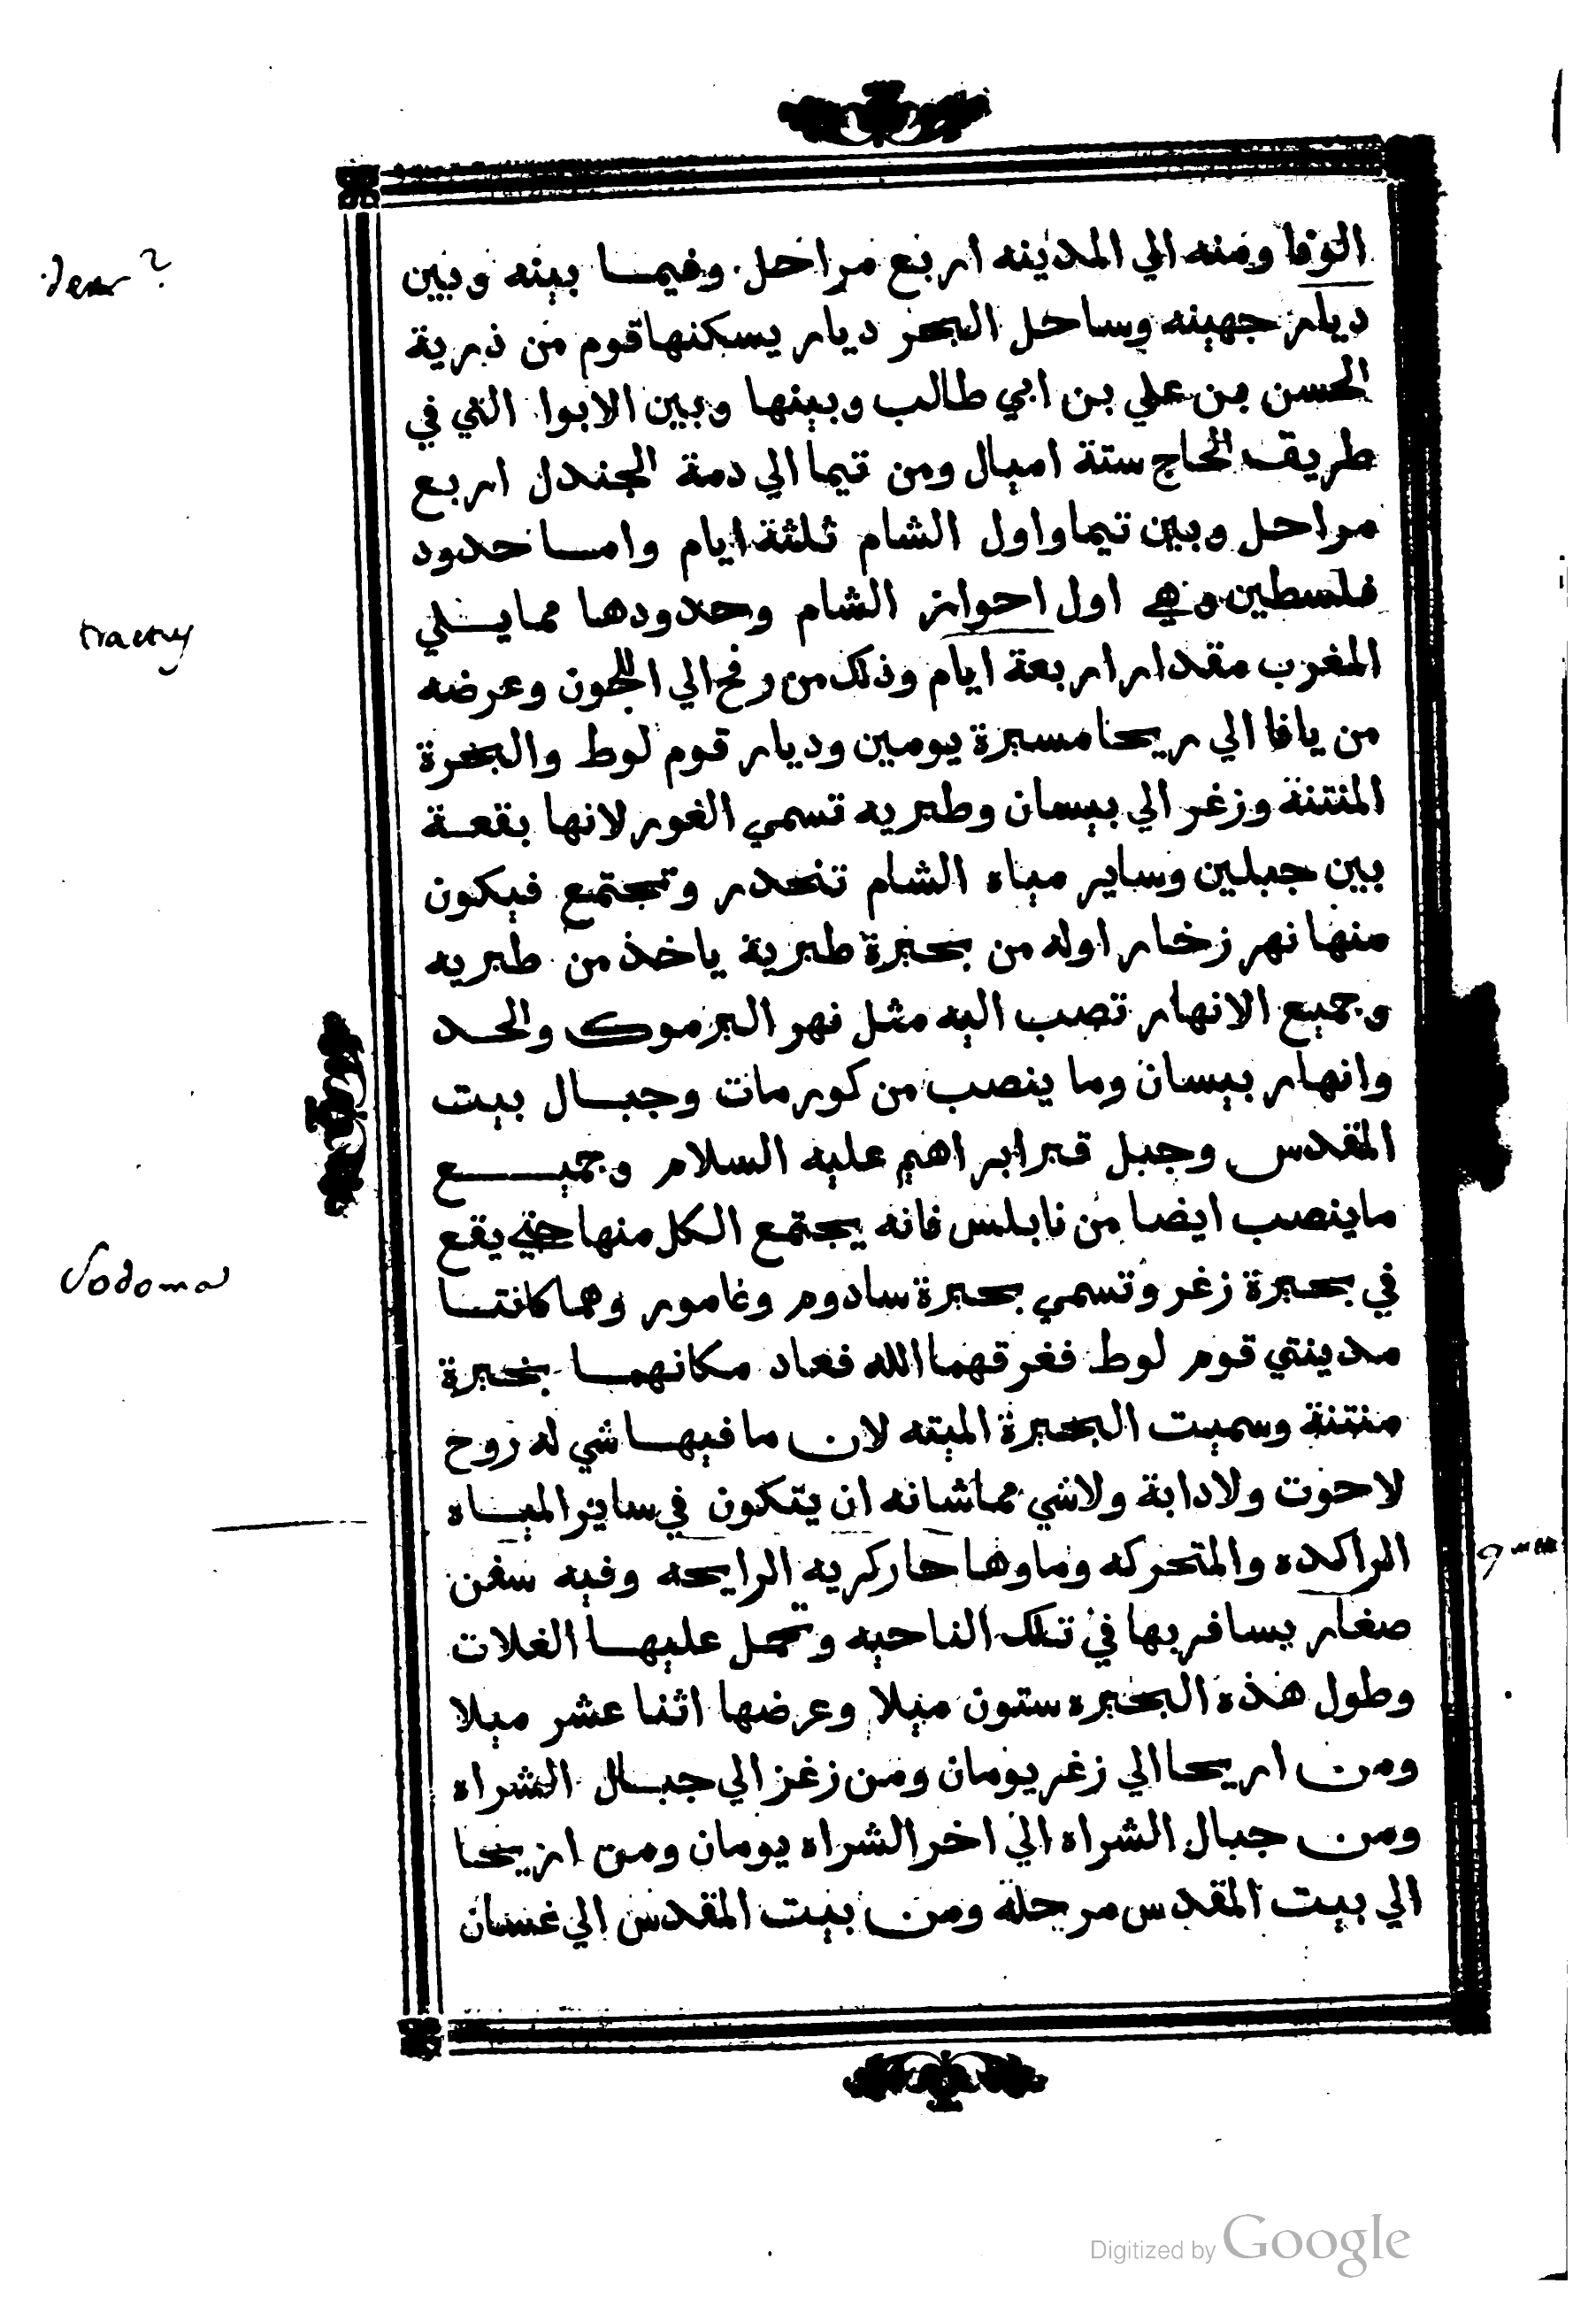 الوفا ومنه الي المدينه اربع مراحل وفيما بينه وبين
ديار جهينه وساحل البحر ديار يسكنها قوم من ذرية
الحسن بن علي بن ابي طالب وبينها وبين الابوا التي في
طريق الحاج ستة اميال ومن تيما الي دمة الجندل اربع
مراحل وبين تيما واول الشام ثلثة ايام واما حدود
فلسطين وهي اول احواز الشام وحدودها مما يلي
المغرب مقدار اربعة ايام وذلك من رفح الي اللجون وعرضه
من يافا الي ريحا مسيرة يومين وديار قوم لوط والبحرة
المنتنة وزغر الي بيسان وطبريه تسمي الغور لانها بقعة
بين جبلين وساير مياه الشام تنحدر وتجتمع فيكون
منها نهر زخار اوله من بحيرة طبرية ياخذ من طبريه
وجميع الانهار تصب اليه مثل نهر اليرموك والحد
وانهار بيسان وما ينصب من كور مات وجبال بيت
المقدس وجبل قبر ابراهيم عليه السلام وجميع
ما ينصب ايضا من نابلس فانه يجتمع الكل منها حتي يقع
في بحيرة زغر وتسمي بحيرة سادوم وغامور وهما كانتا
مدينتي قوم لوط فغرقهما الله فعاد مكانهما بحيرة
منتنة وسميت البحيرة الميته لان ما فيها شي له روح
لا حوت ولا دابة ولا شي مما شانه ان يتكون في ساير المياه
الراكده والمتحركه وماوها حار كريه الرايحه وفيه سفن
صغار يسافر بها في تلك الناحيه وتحمل عليها الغلات
وطول هذه البحيره ستون ميلا وعرضها اثنا عشر ميلا
ومن اريحا الي زغر يومان ومن زغر الي جبال الشراه
ومن جبال الشراه الي اخر الشراه يومان ومن اريحا
الي بيت المقدس مرحلة ومن بيت المقدس الي غسان
tractus
Sodoma
Digitized by Google